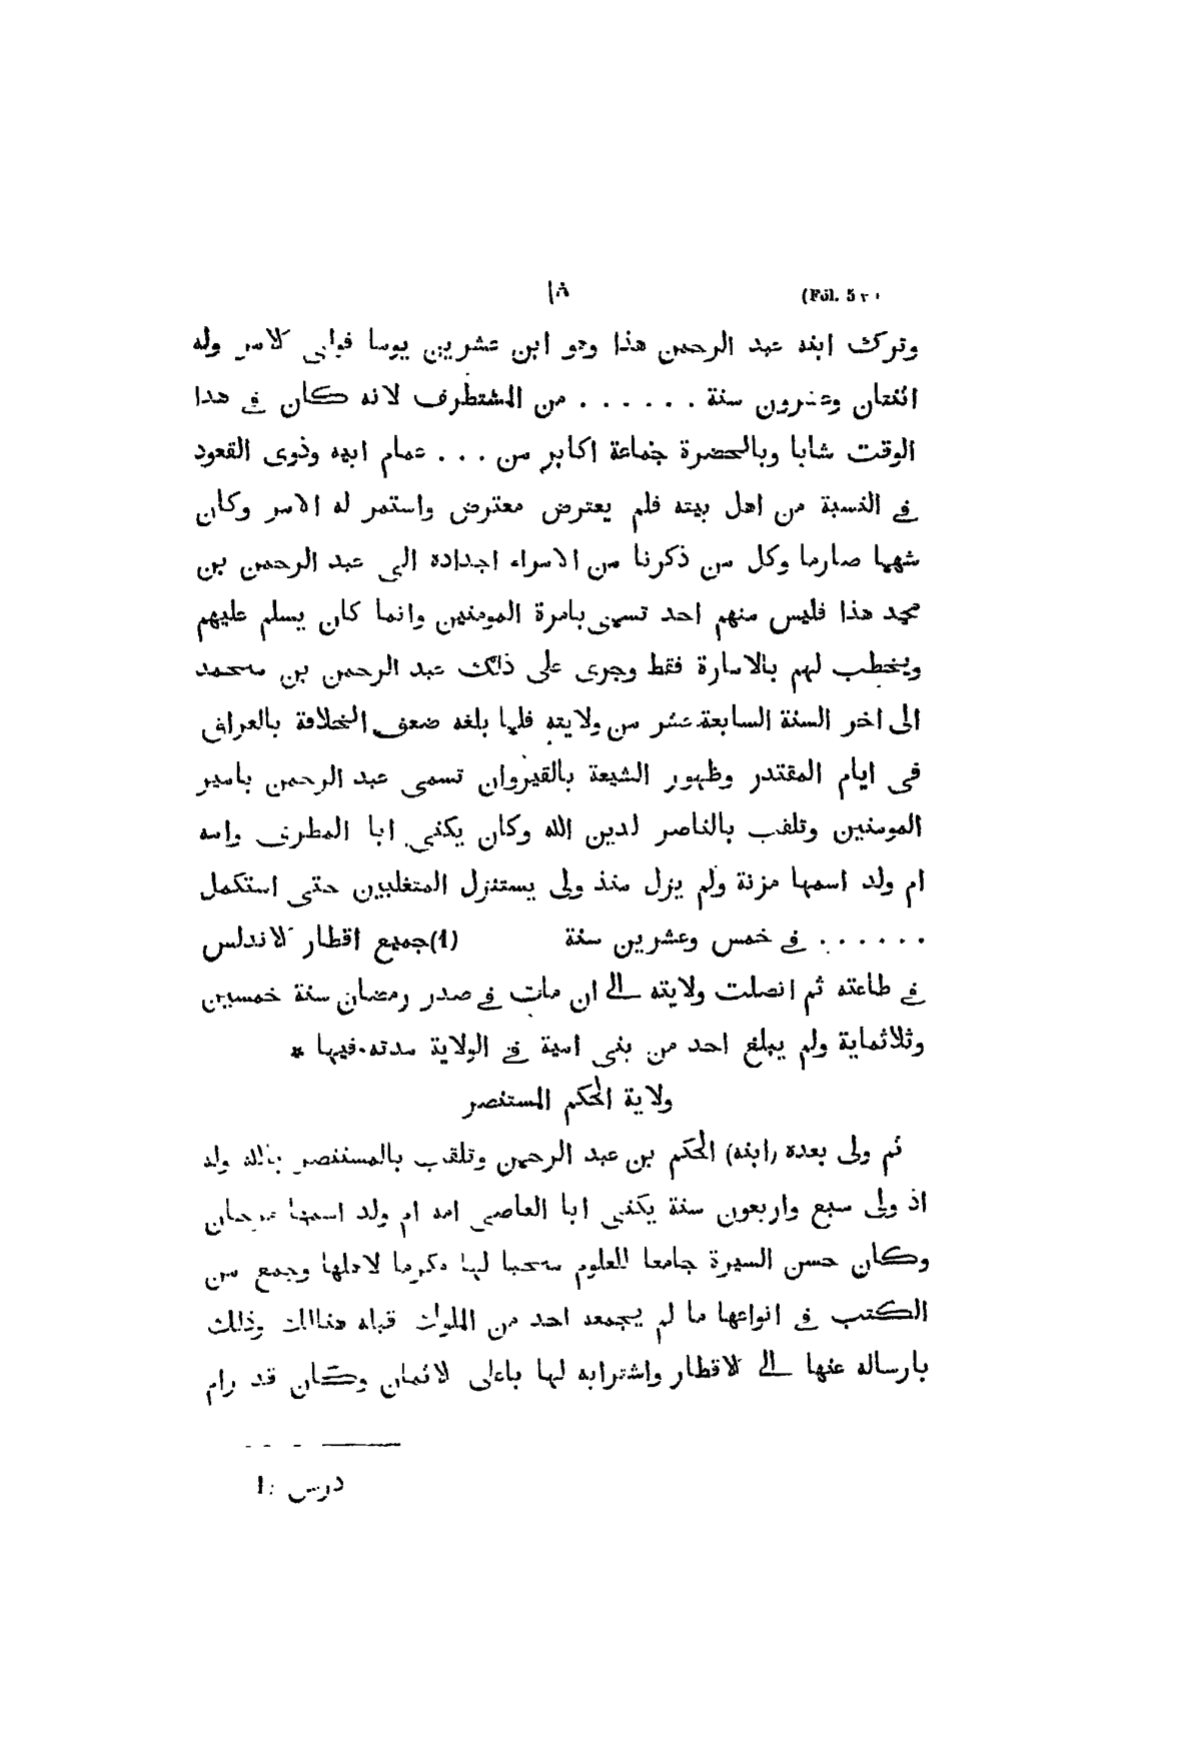 ١٨ (Fol. 5 r
وترك ابنه عبد الرحمن هذا وهو ابن عشرين يوما فولى الامر وله
اثنتان وعشرون سنة . . . . . . من المستطرف لانه كان في هذا
الوقت شابا وبالحضرة جماعة اكابر من . . . عمام ابيه وذوى القعود
في النسبة من اهل بيته فلم يعترض معترض واستمر له الامر وكان
شهما صارما وكل من ذكرنا من الامراء اجداده الى عبد الرحمن بن
محمد هذا فليس منهم احد تسمى بامرة المومنين وانما كان يسلم عليهم
ويخطب لهم بالامارة فقط وجرى على ذلك عبد الرحمن بن محمد
الى اخر السنة السابعة عشر من ولايته فلما بلغه ضعف الخلافة بالعراق
فى ايام المقتدر وظهور الشيعة بالقيروان تسمى عبد الرحمن بامير
المومنين وتلقب بالناصر لدين الله وكان يكنى ابا المطرف وامه
ام ولد اسمها مزنة ولم يزل منذ ولى يستنزل المتغلبين حتى استكمل
. . . . . . في خمس وعشرين سنة (1) جميع اقطار الاندلس
في طاعته ثم اتصلت ولايته الى ان مات في صدر رمضان سنة خمسين
وثلاثماية ولم يبلغ احد من بنى امية في الولاية مدته فيها *
ولاية الحكم المستنصر
ثم ولى بعده (ابنه) الحكم بن عبد الرحمن وتلقب بالمستنصر بالله وله
اذ ولى سبع واربعون سنة يكنى ابا العاصى امه ام ولد اسمها مرجان
وكان حسن السيرة جامعا للعلوم محبا لها مكرما لاهلها وجمع من
الكتب في انواعها ما لم يجمعه احد من الملوك قبله هنالك وذلك
بارساله عنها الى الاقطار واشترايه لها باعلى الاثمان وكان قد رام
درس :1